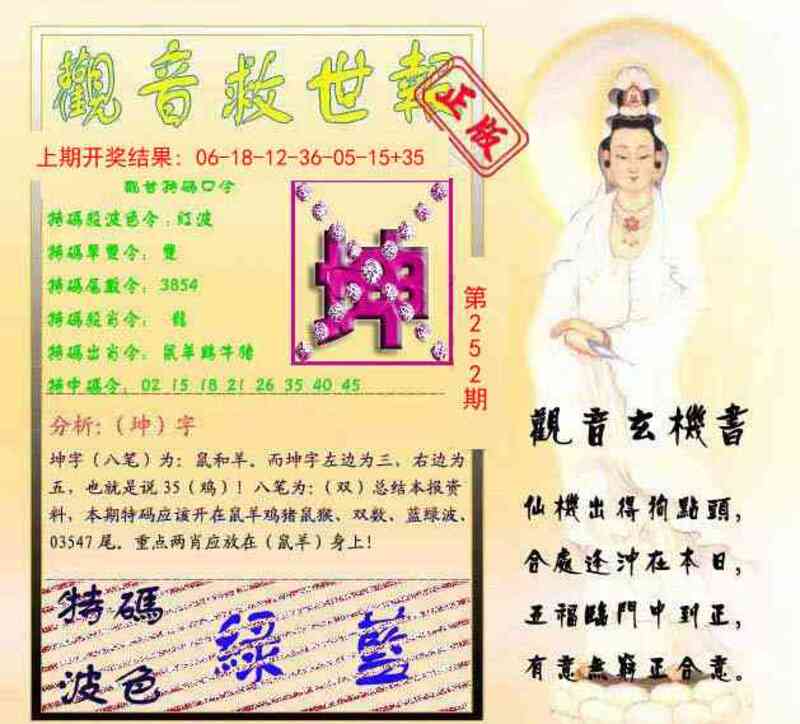 觀音救世報
正版
上期开奖结果：06-18-12-36-05-15+35
觀音特碼口令
特碼殺波色令：红波
特碼單雙令：雙
特碼尾數令：3854
特碼殺肖令：龍
特碼出肖令：鼠羊鷄牛豬
特中碼令：02 15 18 21 26 35 40 45
坤
第252期
分析：（坤）字
坤字（八笔）为：鼠和羊。而坤字左边为三，右边为
五，也就是说35（鸡）！八笔为：（双）总结本报资
料，本期特码应该开在鼠羊鸡猪鼠猴、双数、蓝绿波、
03547尾。重点两肖应放在（鼠羊）身上！
特碼
波色
綠 藍
觀音玄機書
仙機出得狗點頭，
合處逢沖在本日，
五福臨門中到正，
有意無窮正合意。